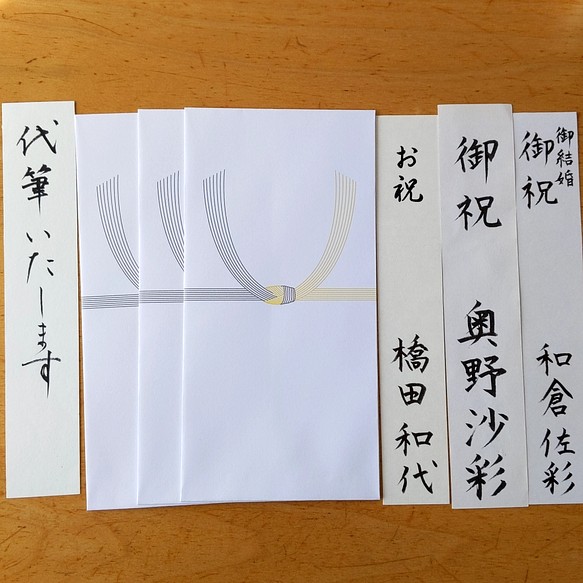 代筆いたします
お祝
橋田和代
御祝
奥野沙彩
御結婚
御祝
和倉佐彩